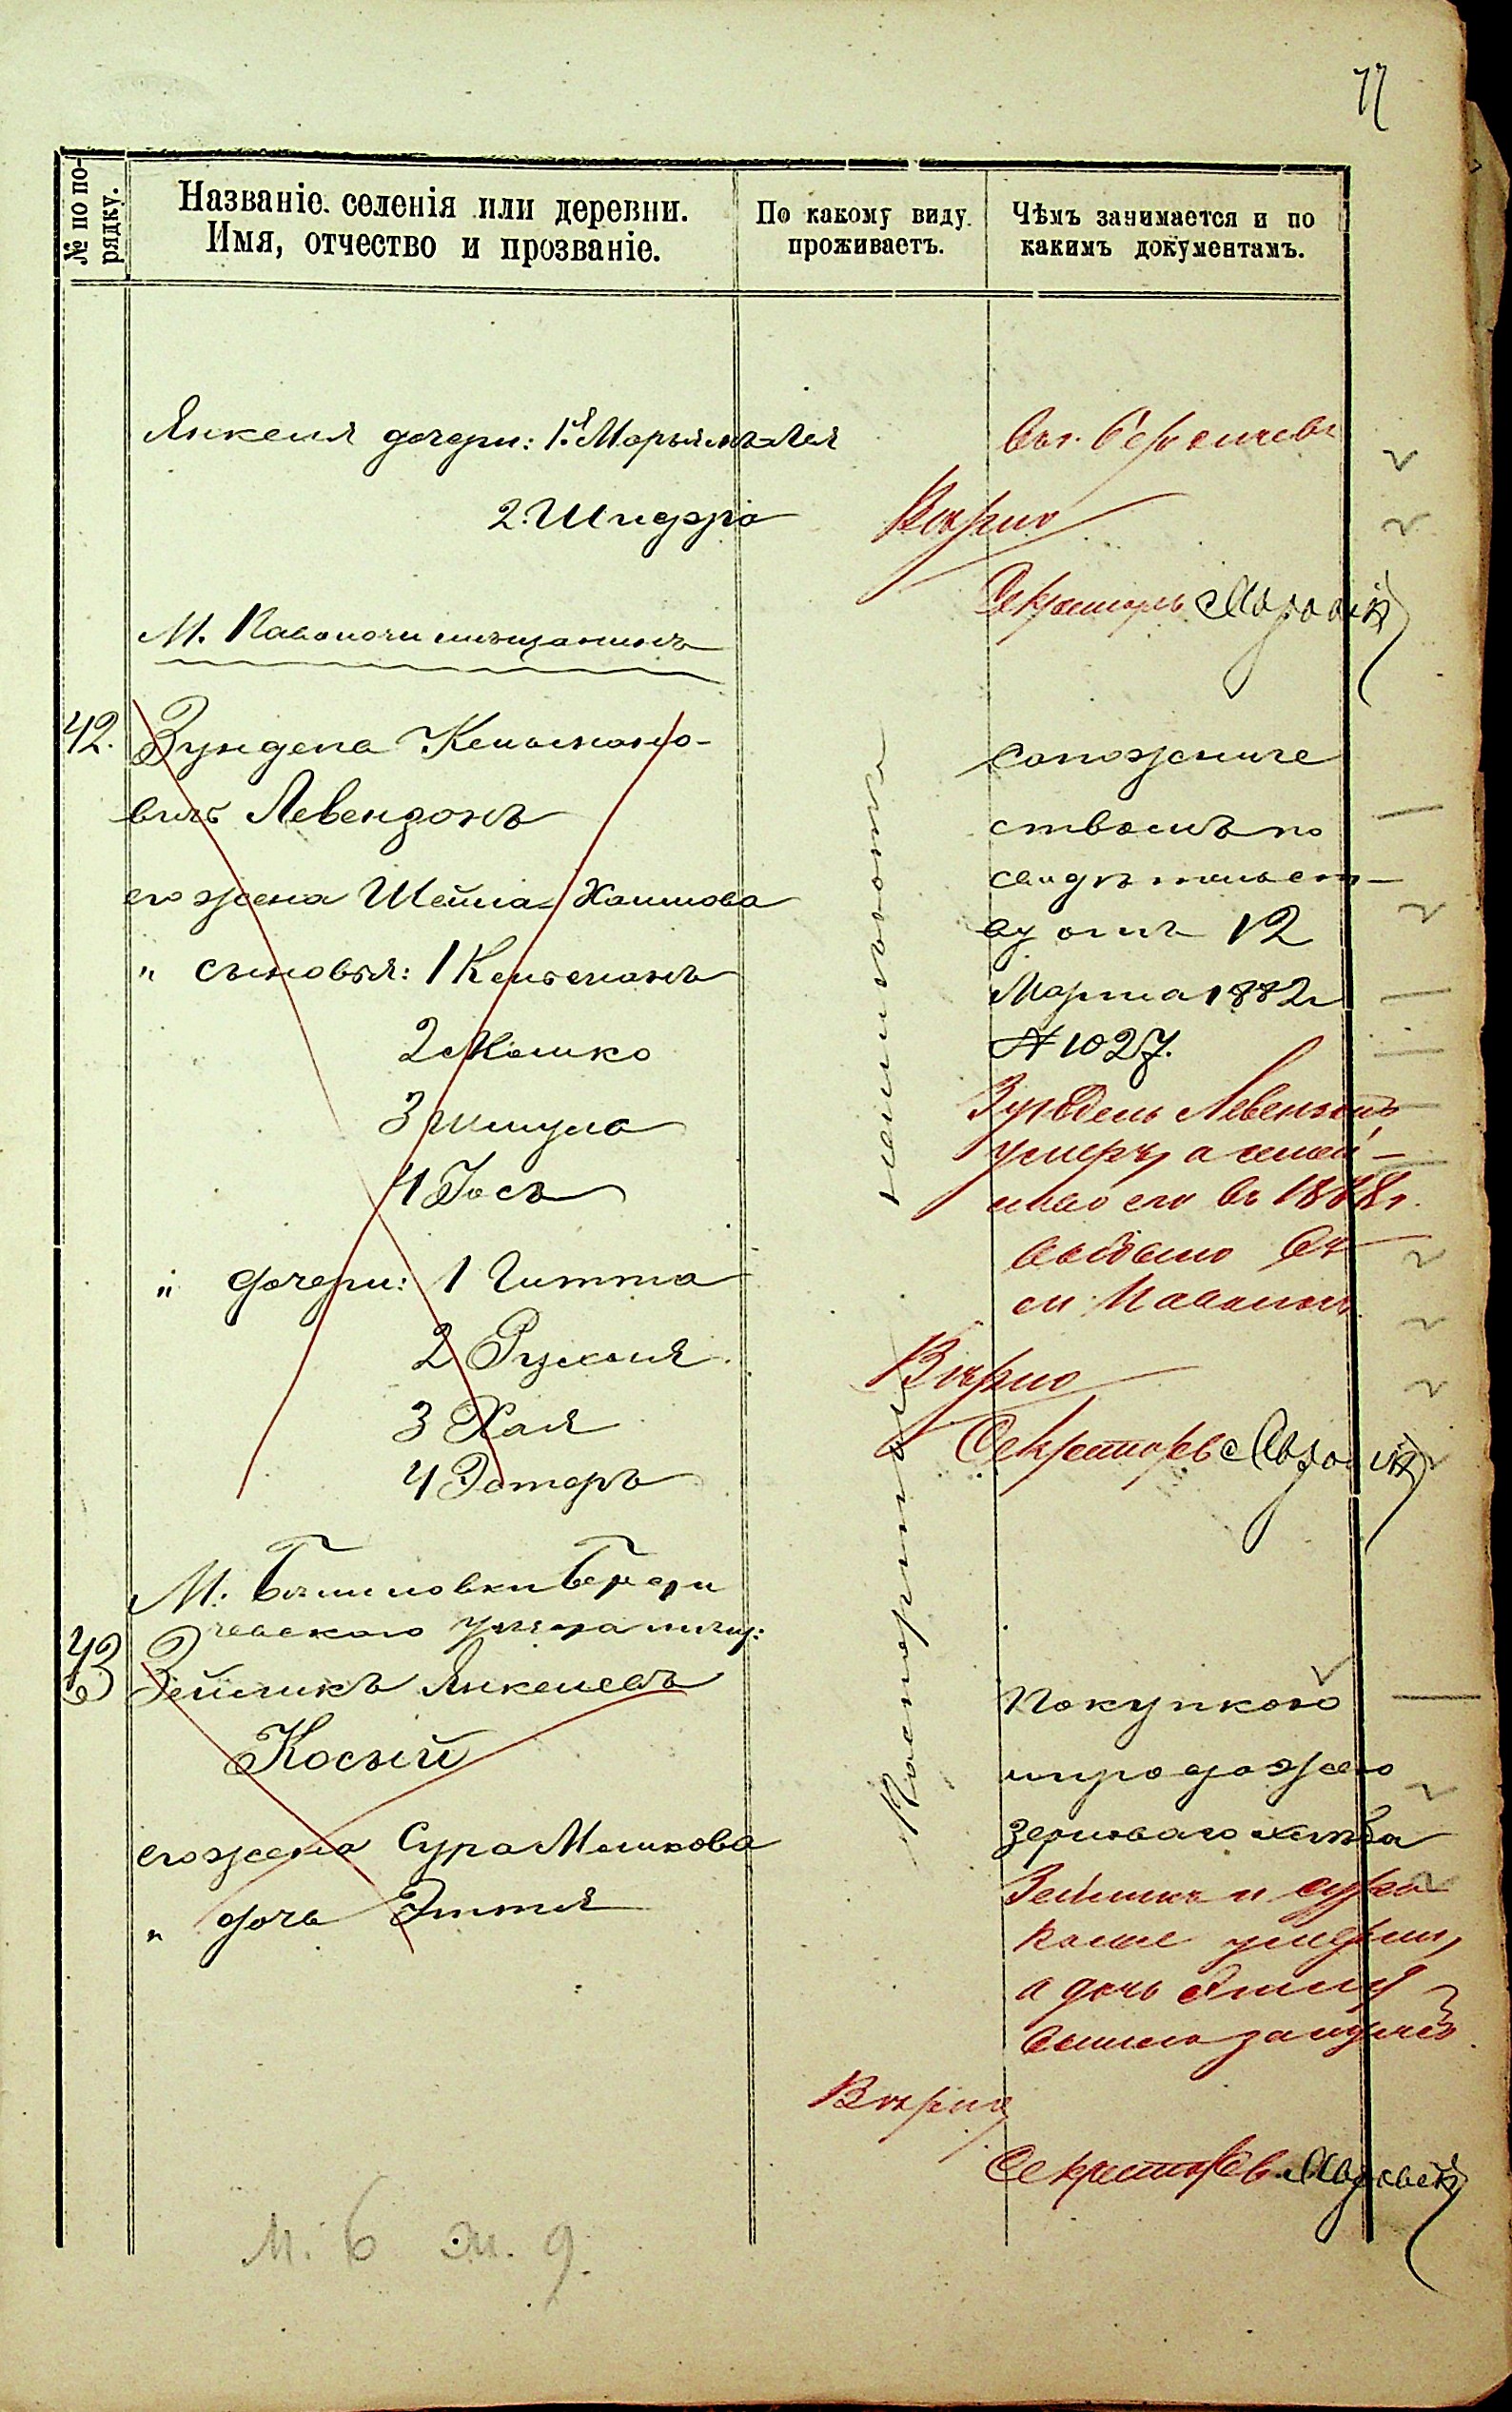 77
№ по по-
рядку.
Названіе селенія или деревни.
Имя, отчество и прозваніе.
По какому виду
проживаетъ.
Чѣмъ занимается и по
какимъ документамъ.
Янкеля дочери: 1я Марьямъ-Лея
2. Шифра
Вѣрно
Секретарь
М. Паволочи мѣщанинъ
42. Зунделя Кельмано-
вичъ Левензонъ
его жена Шейна Хаимова
" сыновья: 1 Кельманъ
2 Мошко
3 Шмула
4 Іосъ
" дочери: 1 Гитта
2 Рухля
3 Хая
4 Эстеръ
сапожниче
ствомъ по
свидѣтельст-
ву отъ 12
Марта 1882 г
№ 1027.
Зундель Левензонъ
умеръ, а семей-
ство его въ 1888 г.
выбыло въ
м. Паволочь
Вѣрно
Секретарь
М. Бѣлиловки Берди
чевскаго уѣзда мѣщ:
43 Зейликъ Янкелевъ
Косый
его жена Сура Мошкова
" дочь Эття
Покупкою
и продажею
зерноваго хлѣба
Зейликъ и Сура
Косые умерли,
а дочь Эття
вышла замужъ
Вѣрно
Секретарь
М. 6 Ж. 9.